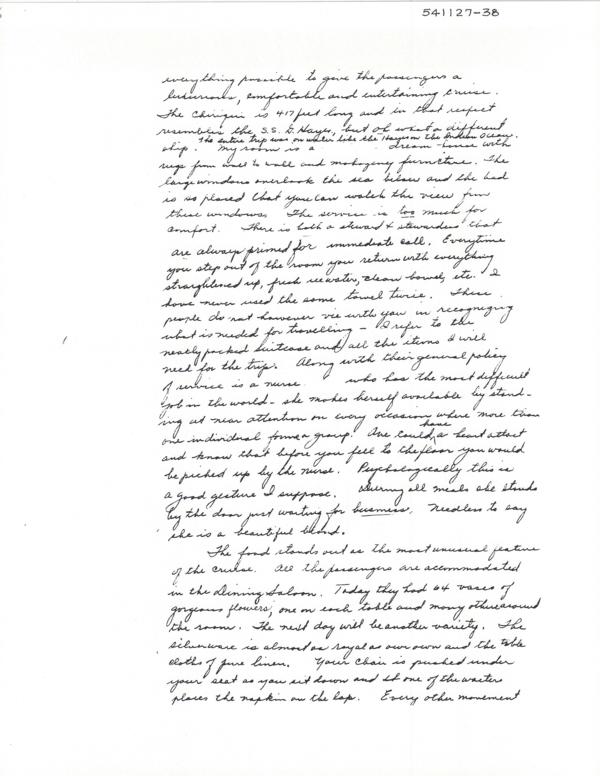 541127-38
everything possible to give the passengers a
luxurious, comfortable and entertaining cruise.
The Chiriqui is 417 feet long and in that respect
resembles the S.S. D. Hayes, but oh what a different
The entire trip was on water like the Hayes on the Indian Ocean.
ship. My room is a dream-house with
rugs from wall to wall and mahogeny furniture. The
large windows overlook the sea below and the bed
is so placed that you can watch the view from
these windows. The service is too much for
comfort. There is both a steward & stewardess that
are always primed for immediate call. Everytime
you step out of the room you return with everything
straightened up, fresh ice water, clean towels, etc. I
have never used the same towel twice. These
people do not however vie with you in recognizing
what is needed for travelling - I refer to the
neatly packed suitcase and all the items I will
need for the trip. Along with their general policy
of service is a nurse who has the most difficult
job in the world - she makes herself available by stand-
ing at near attention on every occasion where more than
one individual forms a group. One could have a heart attact
and know that before you fell to the floor you would
be picked up by the nurse. Psychologically this is
a good gesture I suppose. During all meals she stands
by the door just waiting for business. Needless to say
she is a beautiful blond.
The food stands out as the most unusual feature
of the cruise. All the passengers are accommodated
in the Dining Saloon. Today they had 64 vases of
gorgeous flowers, one on each table and many others around
the room. The next day will be another variety. The
silverware is almost as royal as our own and the table
cloths of pure linen. Your chair is pushed under
your seat as you sit down and one of the waiters
places the napkin on the lap. Every other movement